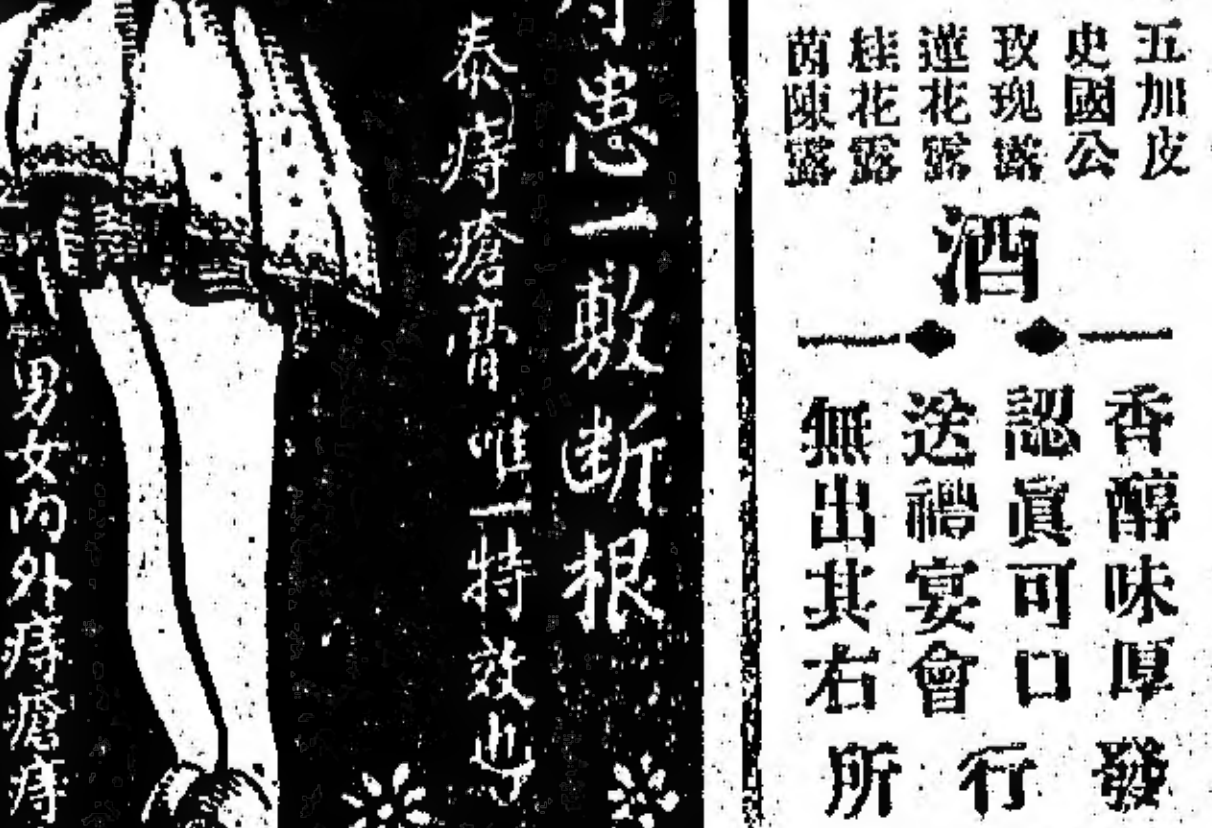 五加皮
史國公
玫瑰露
蓮花露
桂花露
茵陳露
酒
香醇味厚
認眞可口
送禮宴會
無出其右
發行所
患一敷断根
泰痔瘡膏唯一特效也
男女內外痔瘡痔